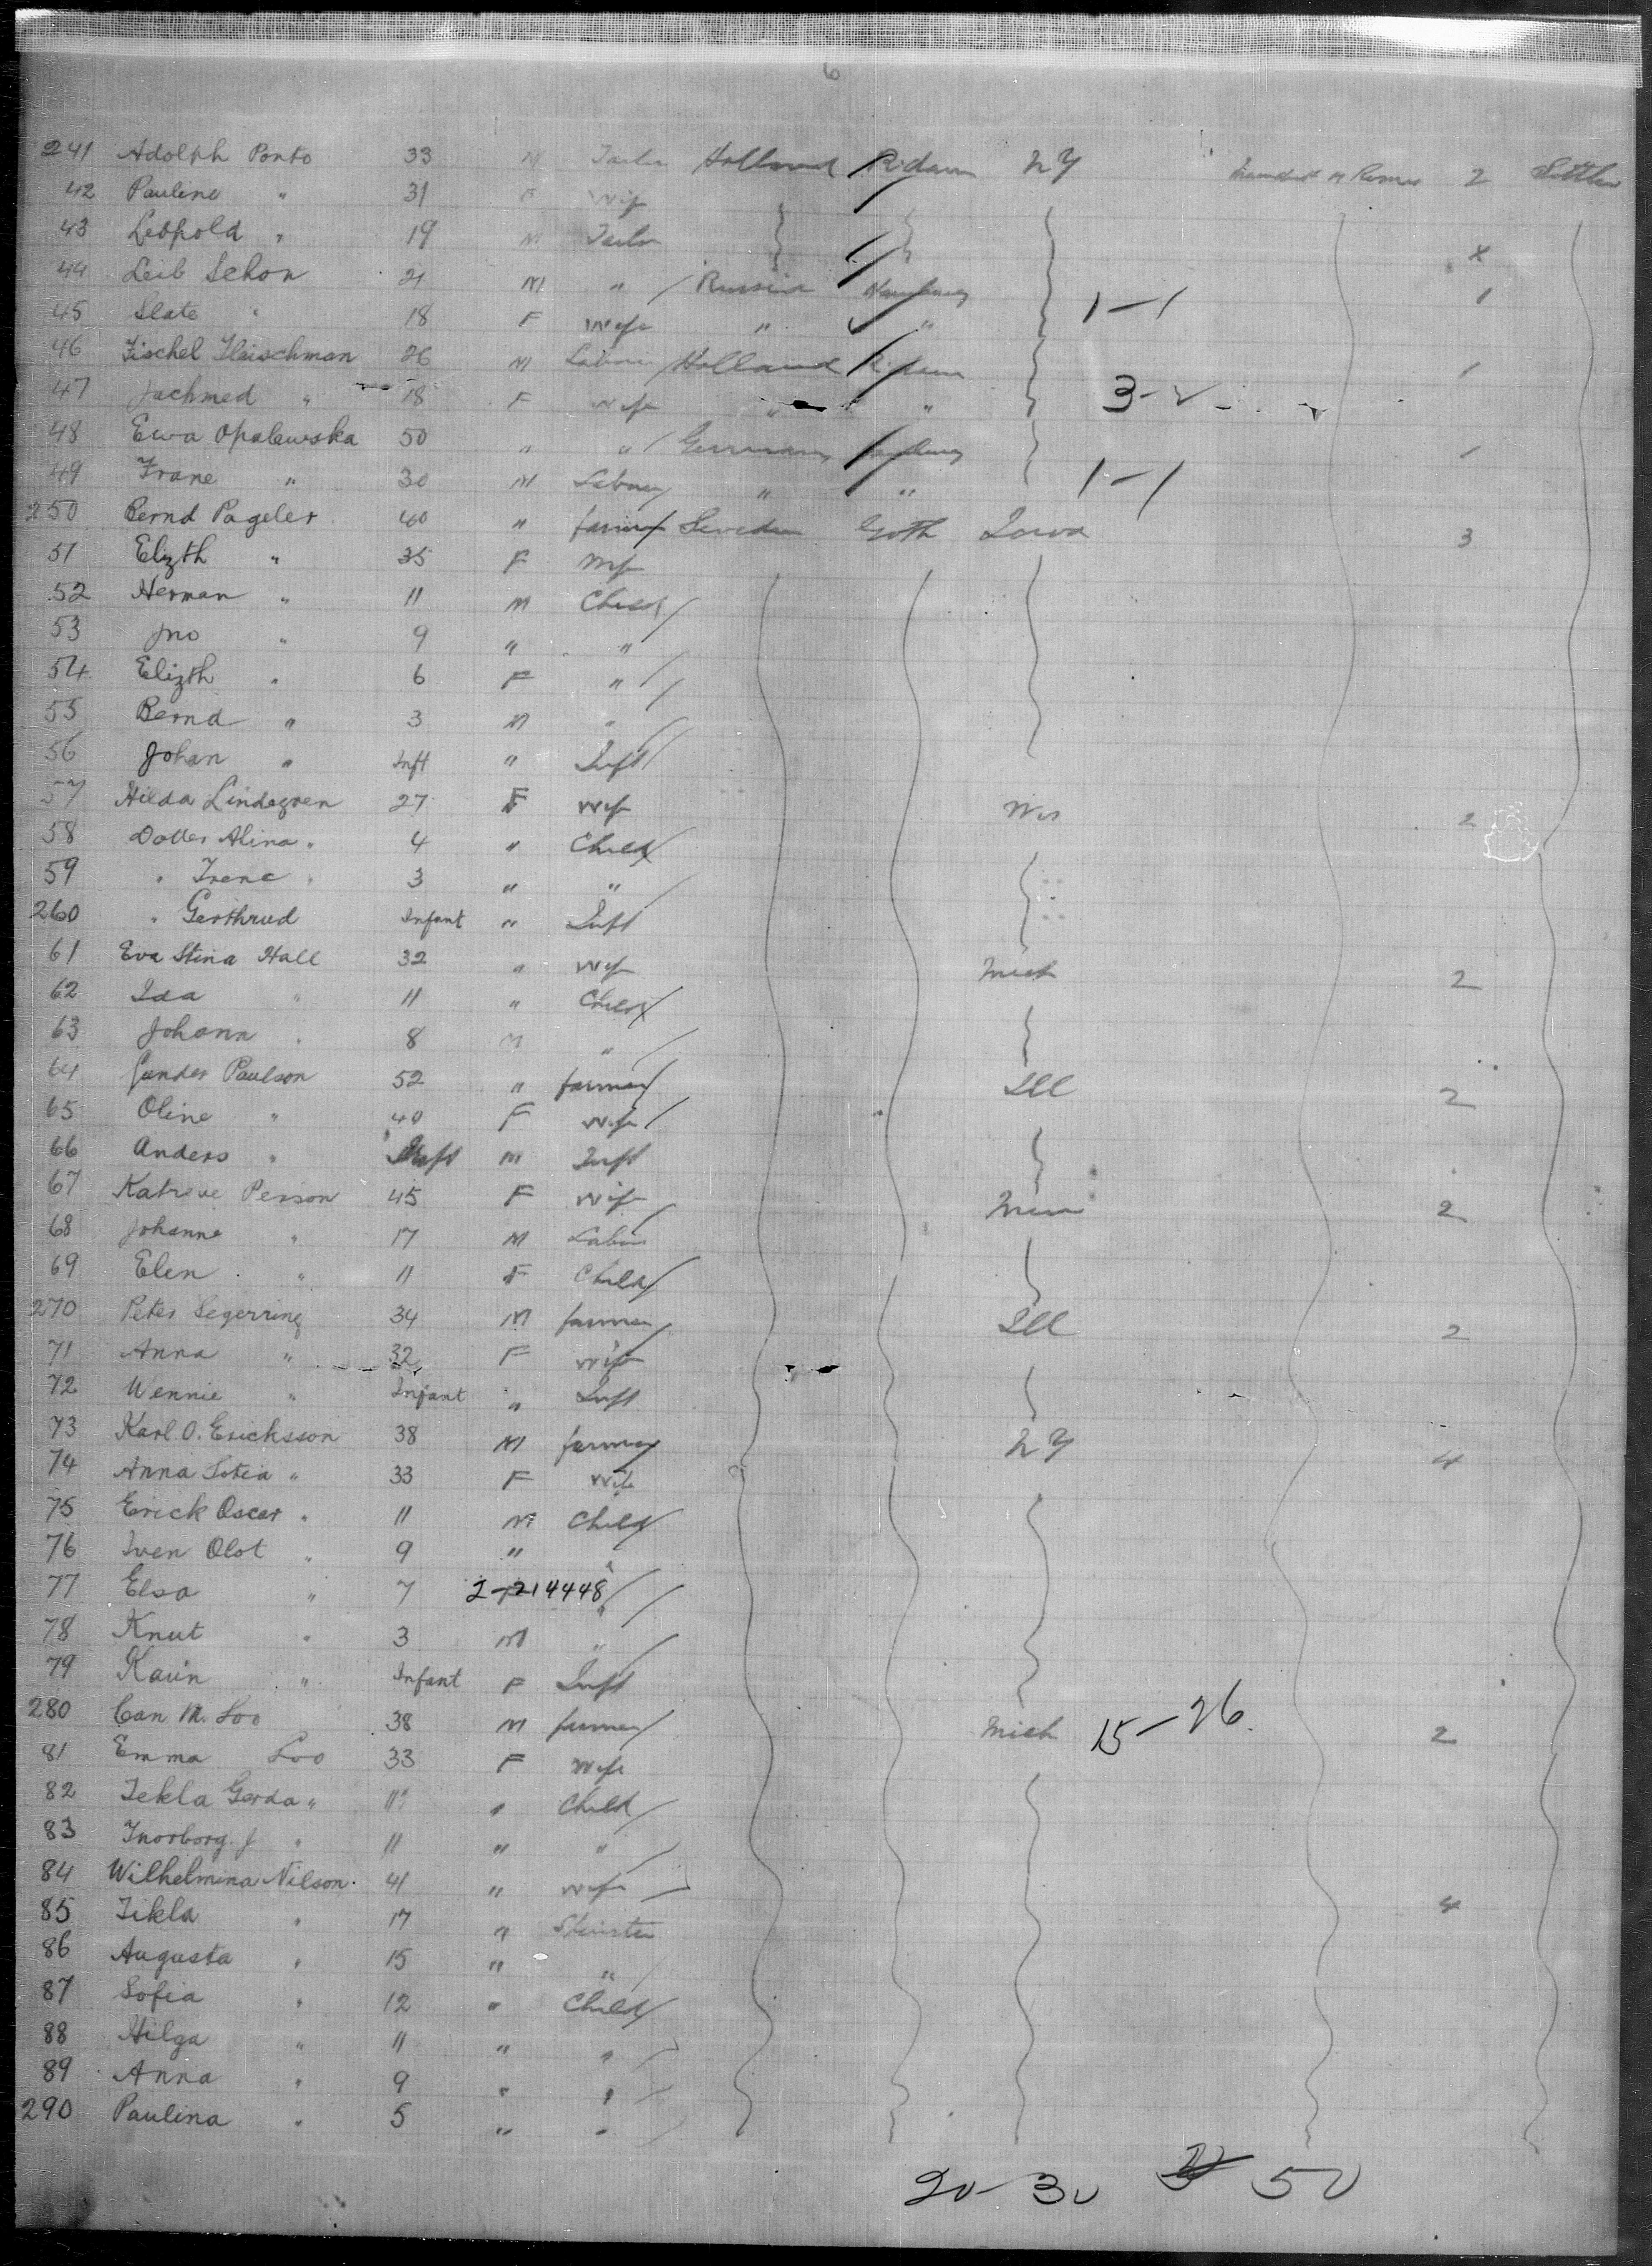 6
241 Adolph Ponto 33 M Tailor Holland R.dam NY 2 Settler
42 Pauline " 31 F Wife
43 Leopold " 19 M Tailor x
44 Leib Schon 21 M " Russia Hamburg 1-1 1
45 Slate " 18 F Wife " "
46 Fischel Fleischman 26 M Labour Holland R.dam 1
47 Jachmed " 18 F Wife " " 3-2
48 Ewa Opalewska 50 " " Germany Hamburg 1
49 Frane " 30 M Labour " " 1-1
250 Bernd Pageler 40 " farmer Sweden Goth Iowa 3
51 Elizth " 35 F Wife
52 Herman " 11 M Child
53 Jno " 9 " "
54 Elizth " 6 F "
55 Bernd " 3 M "
56 Johan " Inft " Inft
57 Hilda Lindegren 27 F Wife Wis 2
58 Dotter Alina " 4 " Child
59 " Irene " 3 " "
260 " Gerthrud Infant " Inft
61 Eva Stina Hall 32 " Wife Mich 2
62 Ida " 11 " Child
63 Johann " 8 M "
64 Gunder Paulson 52 " farmer Ill 2
65 Oline " 40 F Wife
66 Anders " Inft M Inft
67 Katreve Person 45 F Wife Minn 2
68 Johanne " 17 M Labour
69 Elen " 11 F Child
270 Peter Segerring 34 M farmer Ill 2
71 Anna " 32 F Wife
72 Wennie " Infant " Inft
73 Karl O. Ericksson 38 M farmer NY 4
74 Anna Sofia " 33 F Wife
75 Erick Oscar " 11 M Child
76 Iven Olof " 9 " "
77 Elsa " 7 2-214448 "
78 Knut " 3 M "
79 Karin " Infant F Inft
280 Carl M. Loo 38 M farmer Mich 15-26 2
81 Emma Loo 33 F Wife
82 Tekla Gerda " 11 " Child
83 Inorborg J " 11 " "
84 Wilhelmina Nilson 41 " Wife
85 Tikla " 17 " Spinster 4
86 Augusta " 15 " "
87 Sofia " 12 " Child
88 Hilga " 11 " "
89 Anna " 9 " "
290 Paulina " 5 " "
20-30 50